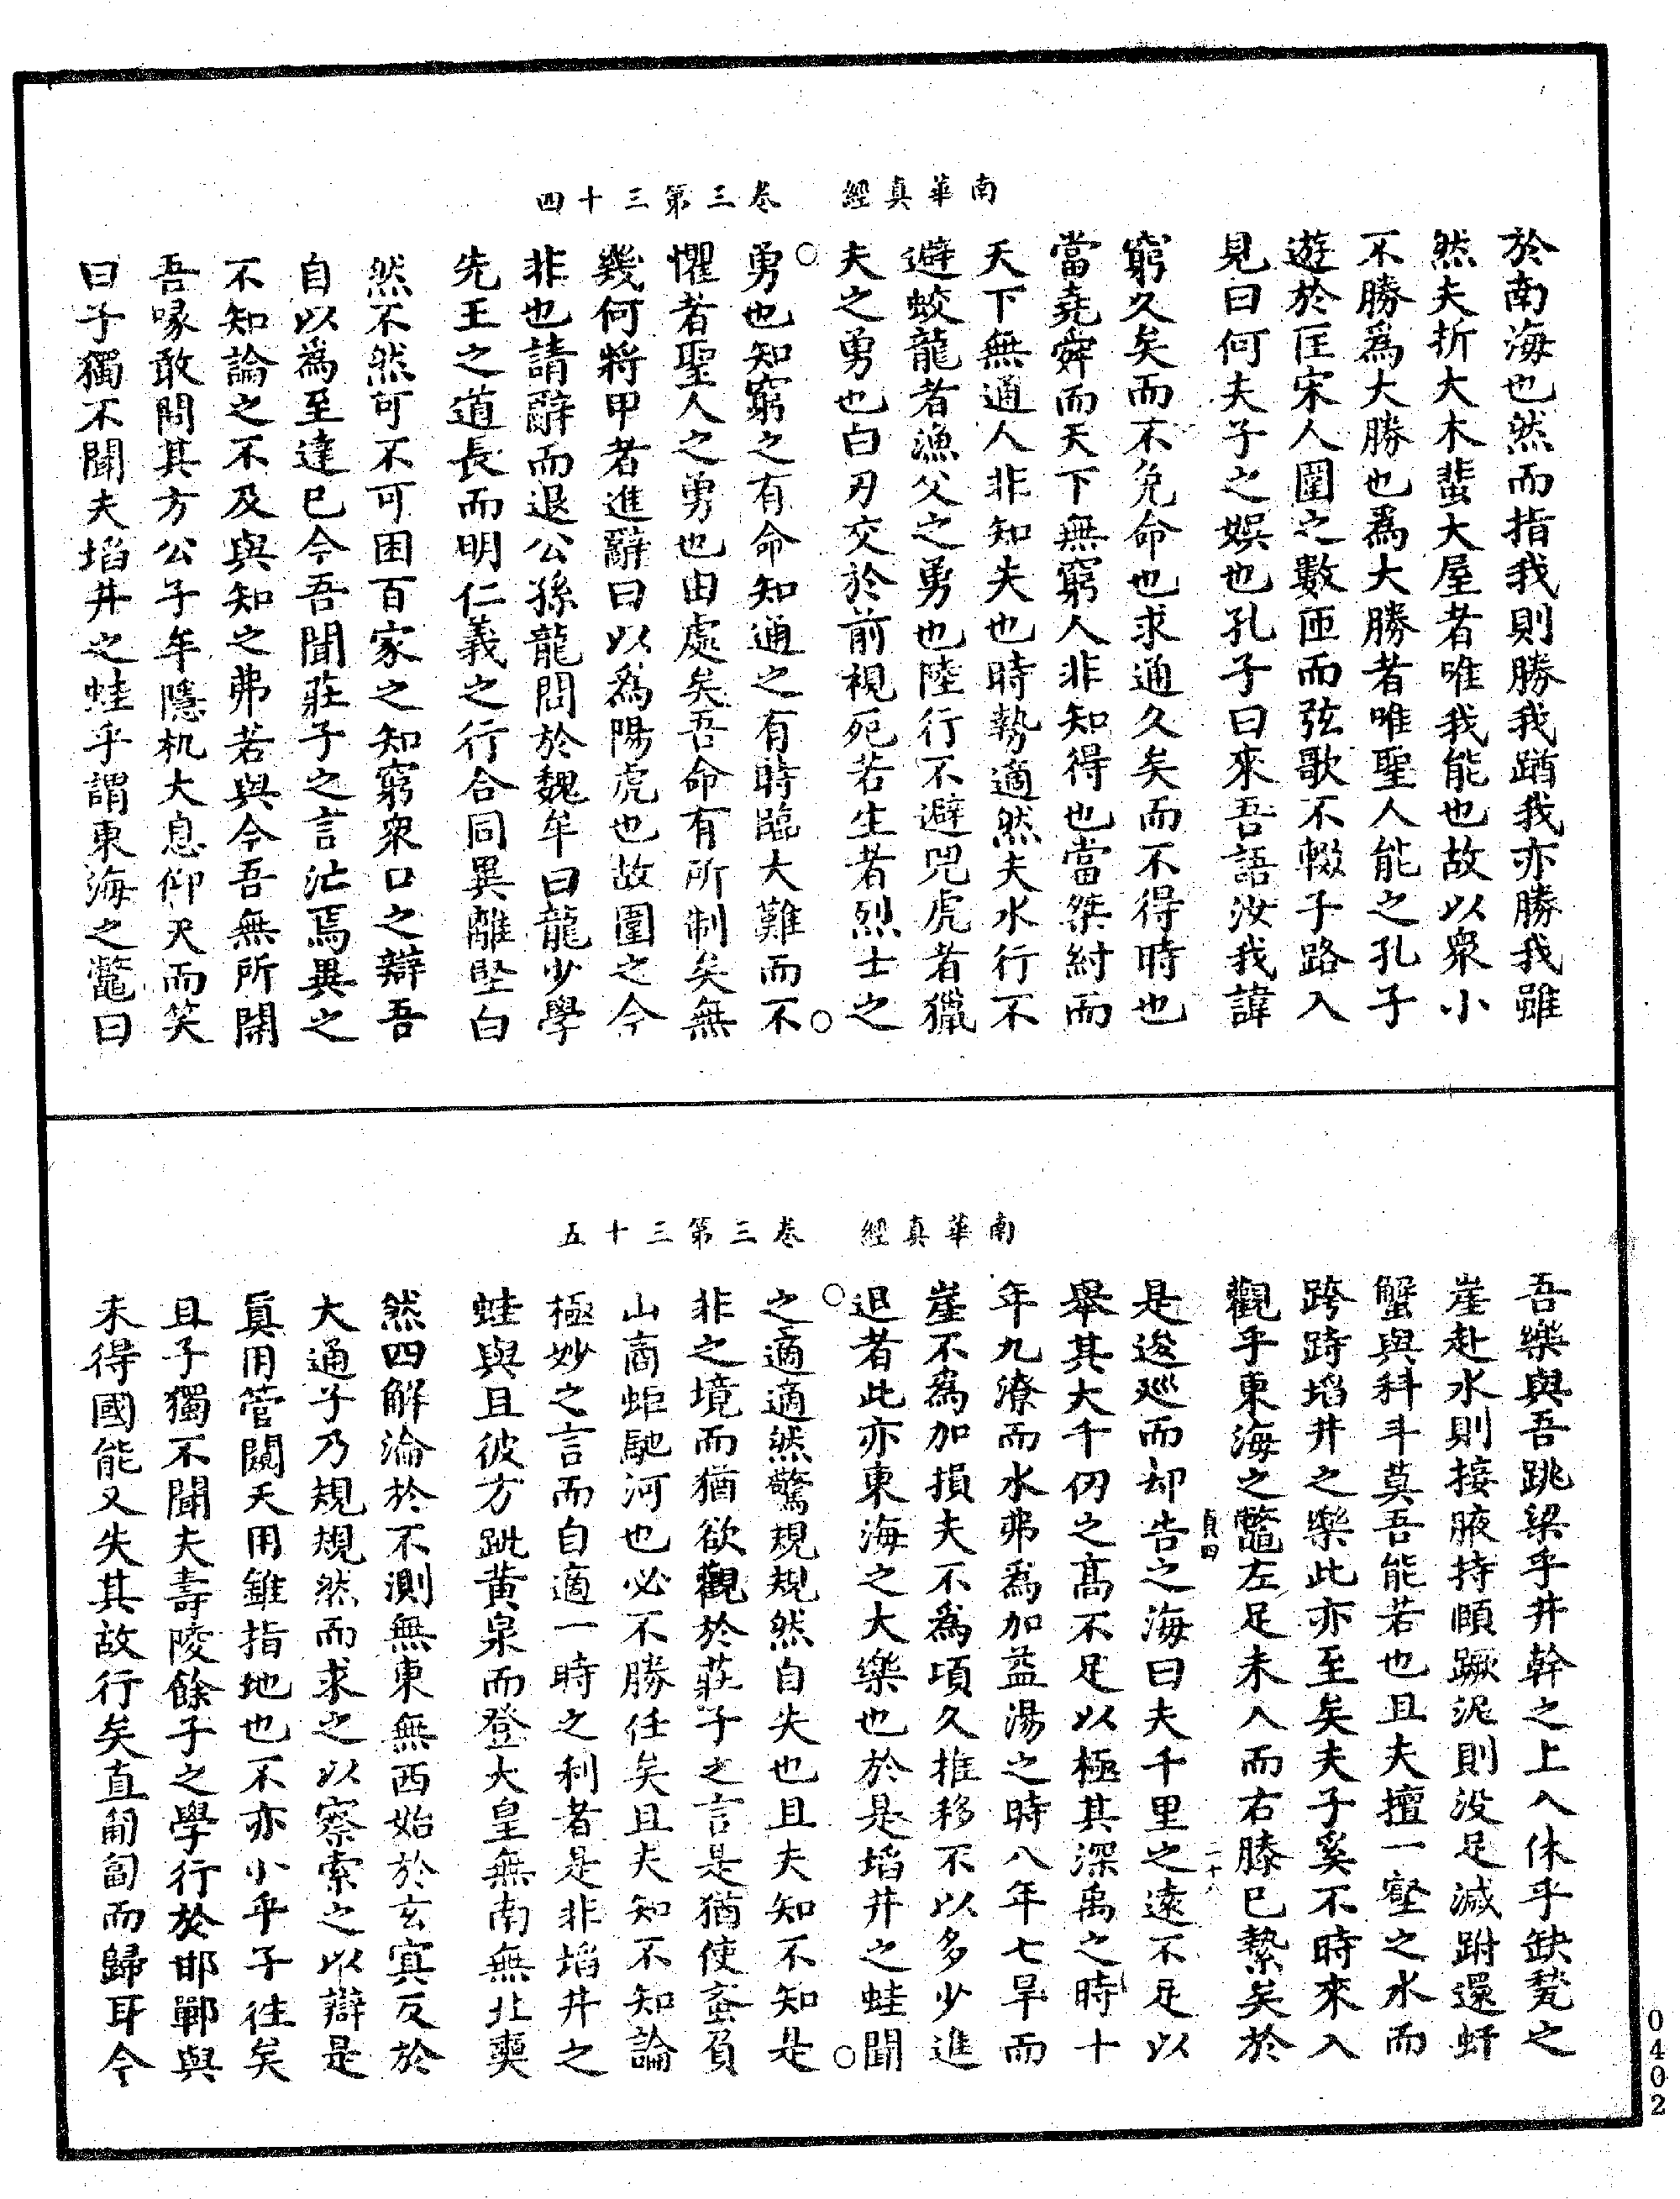 南華真經　卷三第三十四
於南海也然而指我則勝我蹢我亦勝我雖
然夫折大木蜚大屋者唯我能也故以衆小
不勝爲大勝也爲大勝者唯聖人能之孔子
遊於匡宋人圍之數匝而弦歌不輟子路入
見曰何夫子之娛也孔子曰來吾語汝我諱
窮久矣而不免命也求通久矣而不得時也
當堯舜而天下無窮人非知得也當桀紂而
天下無通人非知失也時勢適然夫水行不
避蛟龍者漁父之勇也陸行不避兕虎者獵
夫之勇也白刃交於前視死若生者烈士之
勇也知窮之有命知通之有時臨大難而不
懼者聖人之勇也由處矣吾命有所制矣無
幾何將甲者進辭曰以爲陽虎也故圍之今
非也請辭而退公孫龍問於魏牟曰龍少學
先王之道長而明仁義之行合同異離堅白
然不然可不可困百家之知窮衆口之辯吾
自以爲至達已今吾聞莊子之言汒焉異之
不知論之不及與知之弗若與今吾無所開
吾喙敢問其方公子牟隱机大息仰天而笑
曰子獨不聞夫埳井之蛙乎謂東海之鼈曰
南華真經　卷三第三十五
吾樂與吾跳梁乎井幹之上入休乎缺甃之
崖赴水則接腋持頤蹶泥則没足滅跗還虷
蟹與科斗莫吾能若也且夫擅一壑之水而
跨跱埳井之樂此亦至矣夫子奚不時來入
觀乎東海之鼈左足未入而右膝已縶矣於
貞四　二十八
是逡巡而却告之海曰夫千里之遠不足以
舉其大千仞之高不足以極其深禹之時十
年九潦而水弗爲加益湯之時八年七旱而
崖不爲加損夫不爲頃久推移不以多少進
退者此亦東海之大樂也於是埳井之蛙聞
之適適然驚規規然自失也且夫知不知是
非之境而猶欲觀於莊子之言是猶使蚉負
山商蚷馳河也必不勝任矣且夫知不知論
極妙之言而自適一時之利者是非埳井之
蛙與且彼方跐黄泉而登大皇無南無北奭
然四解淪於不測無東無西始於玄冥反於
大通子乃規規然而求之以察索之以辯是
真用管闚天用錐指地也不亦小乎子往矣
且子獨不聞夫壽陵餘子之學行於邯鄲與
未得國能又失其故行矣直匍匐而歸耳今
0402